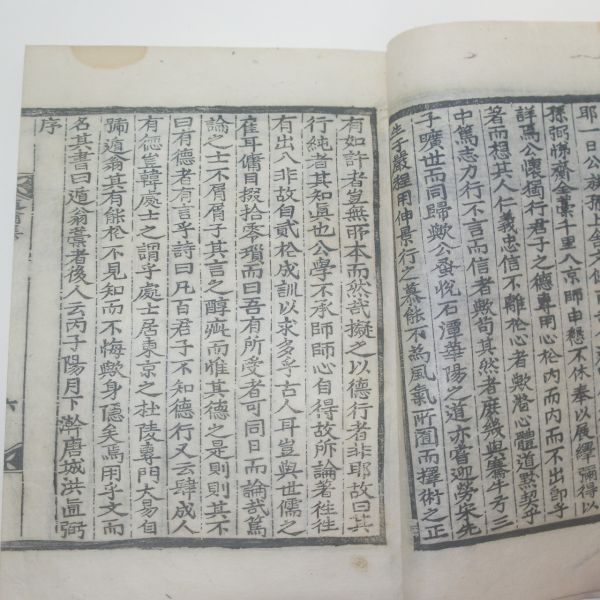 耶一日公族孫上舍
孫弼悌齎全藁千里入京師申懇不休奉以展繹彌得以
詳焉公懷獨行君子之德專用心於內而內而不出卽乎
著而想其人仁義忠信不離於心者歟營心體道默契乎
中篤志力行不言而信者歟苟其然者庶幾與騫牛歺三
子曠世而同歸歟公蚤悅石潭華陽之道亦嘗迎勞宋先
生子嚴程用伸景行之慕能不爲風氣所囿而擇術之正
有如許者豈無所本而然哉擬之以德行者非耶故曰其
行純者其知眞也公學不承師師心自得故所論者徃徃
有出入非故自貳於成訓以求多乎古人耳豈與世儒之
隺耳傭目掇拾零瓚而曰吾有所受者可同日而論哉篤
論之士不屑屑乎其言之醇疵而惟其德之是則則其不
曰有德者有言乎詩曰凡百君子不知德行又云肆成人
有德豈韓處士之謂乎處士居東京之杜陵專門大易自
號遁翁其有能於不見知而不悔歟身隱矣焉用乎文而
名其書曰遁翁藁者後人云丙子陽月下澣唐城洪直弼
序